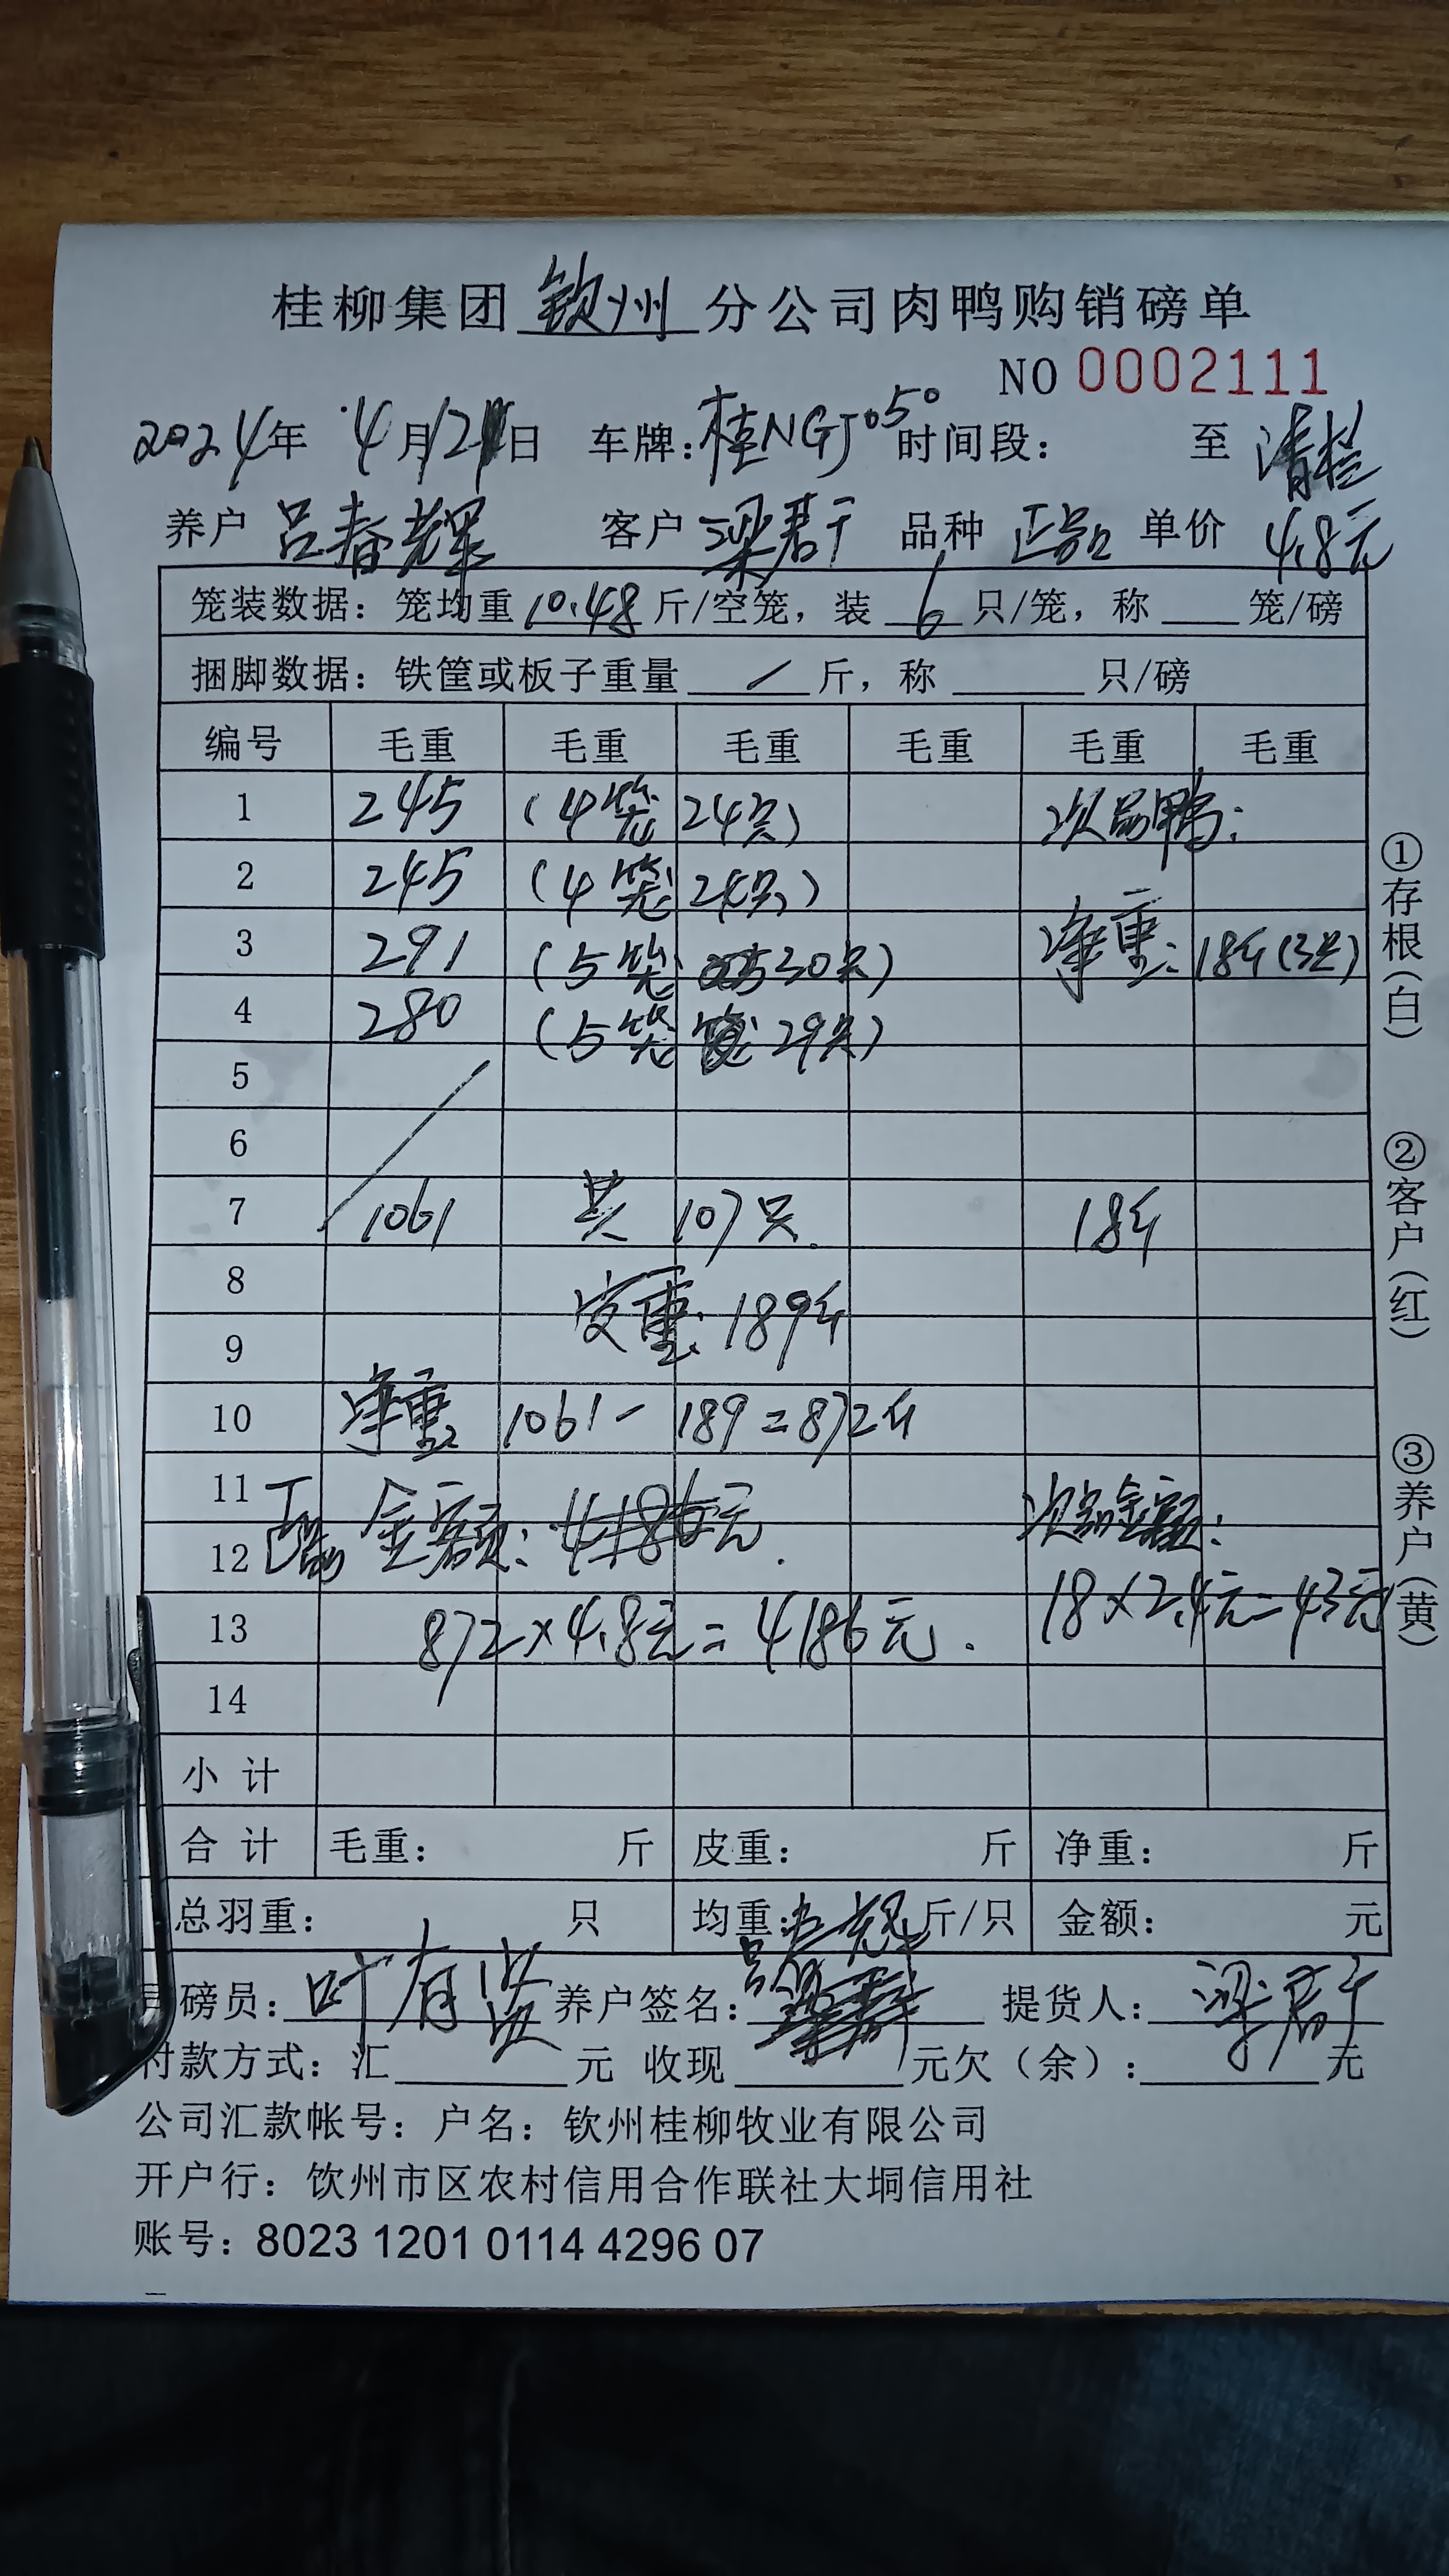 桂柳集团 钦州 分公司肉鸭购销磅单
NO 0002111
2024年 4月 日 车牌:桂NGJ050 时间段: 至 清栏
养户 吕春辉 客户 梁君干 品种 正品 单价 4.8元
笼装数据: 笼均重 10.48 斤/空笼, 装 6 只/笼, 称 笼/磅
捆脚数据: 铁筐或板子重量 / 斤, 称 只/磅
编号 毛重 毛重 毛重 毛重 毛重 毛重
1 245 (4笼 24只) 次品鸭:
2 245 (4笼 24只)
3 291 (5笼 30只) 净重: 18斤(3只)
4 280 (5笼 29只)
5
6
7 1061 共 107只. 18斤
8
皮重: 189斤
9
10 净重 1061-189=872斤
11
正品 金额: 4186元. 次品金额:
12
13 872×4.8元=4186元. 18×2.4元=43元
14
小计
合计 毛重: 斤 皮重: 斤 净重: 斤
总羽重: 只 均重: 斤/只 金额: 元
磅员: 叶有 养户签名: 提货人: 梁君干
付款方式: 汇 元 收现 元欠(余): 元
公司汇款帐号: 户名: 钦州桂柳牧业有限公司
开户行: 钦州市区农村信用合作联社大垌信用社
账号: 8023 1201 0114 4296 07
①存根(白)
②客户(红)
③养户(黄)